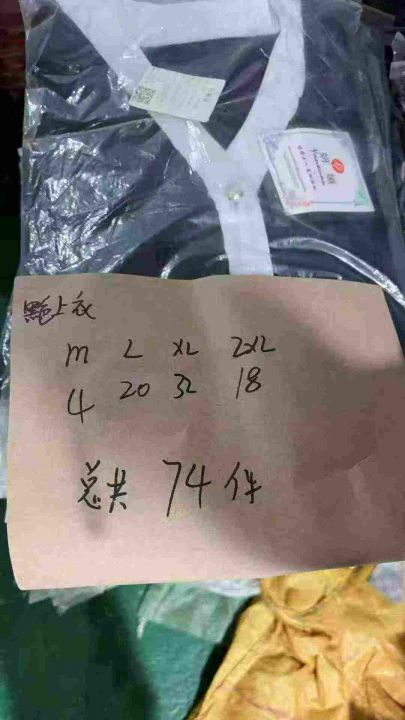 上衣
M L XL 2XL
4 20 32 18
总共 74 件